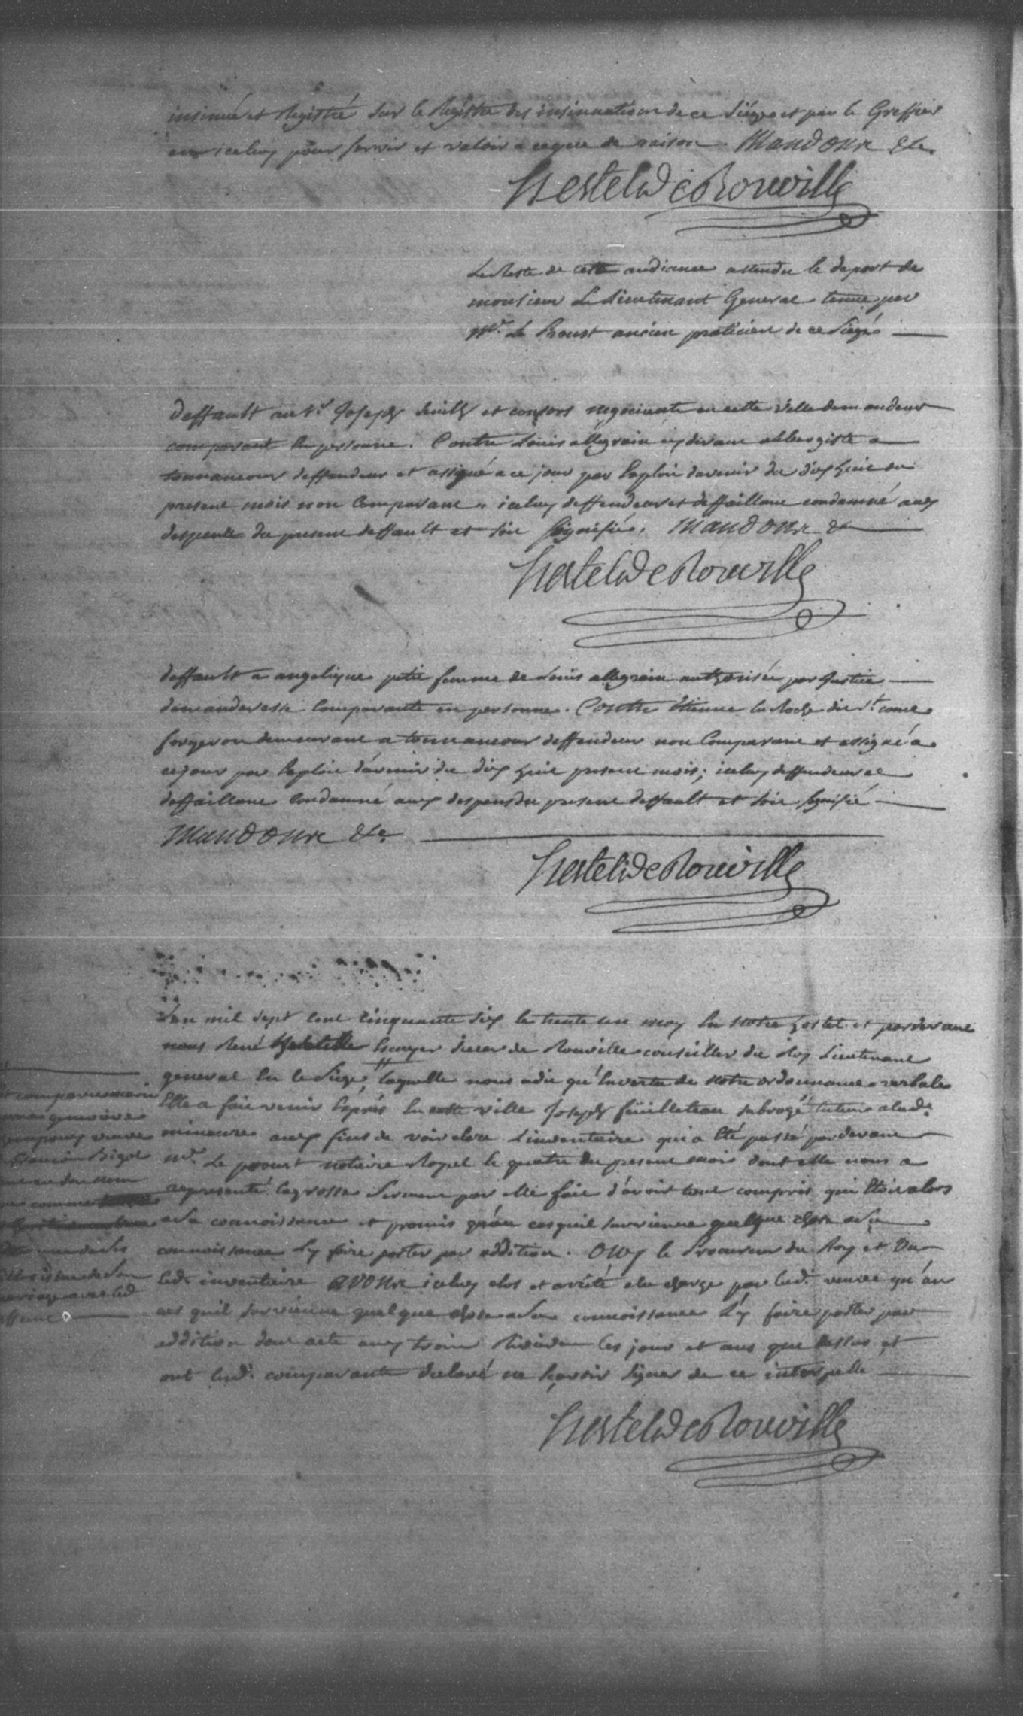 insinué et Registré sur le Registre des insinuations de ce Siége et par le Greffier
en iceluy pour servir et valoir a ce que de raison. Mandons &c.
Hertel de Rouville
Le Reste de cette audiance attendu le deport de
monsieur Le Lieutenant General tenue par
Mr. Le Proust ancien praticien de ce Siége
deffault au Sr. Joseph et consors negociants en cette ville demandeurs
comparant En personne. Contre Louis allegrain cy devant aubergiste a
tonnancour deffendeur et assigné a ce jour par Exploit davenir du dix huit du
present mois non Comparant, iceluy deffendeur et deffaillant condamné aux
despends du present deffault et soit Signifié. Mandons &c
Hertel de Rouville
deffault a angelique petit femme de Louis allegrain authorisée par Justice
demanderesse Comparante en personne. Contre Etienne la Roche dit St. come
forgeron demeurant a tonnancour deffendeur non Comparant et assigné a
ce jour par Exploit d'avenir du dix huit present mois; iceluy deffendeur et
deffaillant Condamné aux despens du present deffault et soit Signifié
Mandons &c.
Hertel de Rouville
L'an mil sept cent Cinquante six le trente un may En Notre hostel et pardevant
nous René Hertel Escuyer Sieur de Rouville conseiller du Roy Lieutenant
general En le Siége, laquelle nous a dit qu'En vertu de Notre ordonnance verbale
Elle a fait venir Exprés En cette ville Joseph feuilleteau subrogé tuteur a lad.
mineure aux fins de voir clore L'inventaire qui a Eté passé pardevant
Mr. Le proust notaire Royal le quatre du present mois dont elle nous a
representé la grosse Serment par elle fait d'avoir tout compris qui Etoit alors
a Sa connoissance et promis qu'au cas qu'il survienne quelque chose a Sa
connoissance L'y faire porter par addition. Ouy le Procureur du Roy et Vu
led. inventaire avons iceluy clos et arrêté a la charge par lad. veuve qu'au
cas qu'il survienne quelque chose a Sa connoissance L'y faire porter par
addition dont acte aux trois Rivieres les jour et ans que dessus et
ont lesd. comparants declaré ne sçavoir Signer de ce interpellé
Hertel de Rouville
est comparue marie
genevieve
veuve
François Bigot